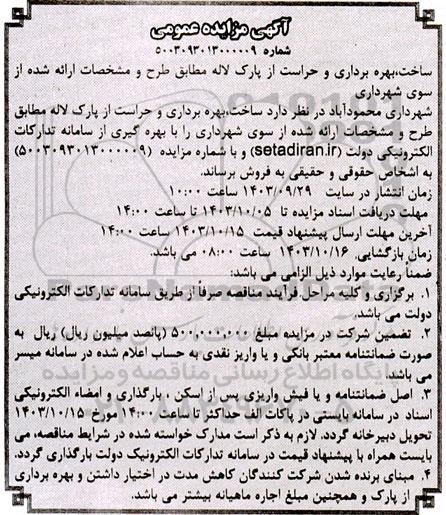 آگهی مزایده عمومی
شماره ۵۰۰۳۰۹۳۰۱۳۰۰۰۰۰۹
ساخت،بهره برداری و حراست از پارک لاله مطابق طرح و مشخصات ارائه شده از
سوی شهرداری
شهرداری محمودآباد در نظر دارد ساخت،بهره برداری و حراست از پارک لاله مطابق
طرح و مشخصات ارائه شده از سوی شهرداری را با بهره گیری از سامانه تدارکات
الکترونیکی دولت (setadiran.ir) و با شماره مزایده (۵۰۰۳۰۹۳۰۱۳۰۰۰۰۰۹)
به اشخاص حقوقی و حقیقی به فروش برساند.
زمان انتشار در سایت ۱۴۰۳/۰۹/۲۹ ساعت ۱۰:۰۰
مهلت دریافت اسناد مزایده تا ۱۴۰۳/۱۰/۰۵ تا ساعت ۱۴:۰۰
آخرین مهلت ارسال پیشنهاد قیمت ۱۴۰۳/۱۰/۱۵ ساعت ۱۴:۰۰
زمان بازگشایی. ۱۴۰۳/۱۰/۱۶ ساعت ۰۸:۰۰ می باشد.
ضمناً رعایت موارد ذیل الزامی می باشد:
۱. برگزاری و کلیه مراحل فرآیند مناقصه صرفاً از طریق سامانه تدارکات الکترونیکی
دولت می باشد.
۲. تضمین شرکت در مزایده مبلغ ۵۰۰,۰۰۰,۰۰۰ (پانصد میلیون ریال) ریال به
صورت ضمانتنامه معتبر بانکی و یا واریز نقدی به حساب اعلام شده در سامانه میسر
می باشد.
۳. اصل ضمانتنامه و یا فیش واریزی پس از اسکن ، بارگذاری و امضاء الکترونیکی
اسناد در سامانه بایستی در پاکات الف حداکثر تا ساعت ۱۴:۰۰ مورخ ۱۴۰۳/۱۰/۱۵
تحویل دبیرخانه گردد. لازم به ذکر است مدارک خواسته شده در شرایط مناقصه، می
بایست همراه با پیشنهاد قیمت در سامانه تدارکات الکترونیک دولت بارگذاری گردد.
۴. مبنای برنده شدن شرکت کنندگان کاهش مدت در اختیار داشتن و بهره برداری
از پارک و همچنین مبلغ اجاره ماهیانه بیشتر می باشد.
پایگاه اطلاع رسانی مناقصه و مزایده